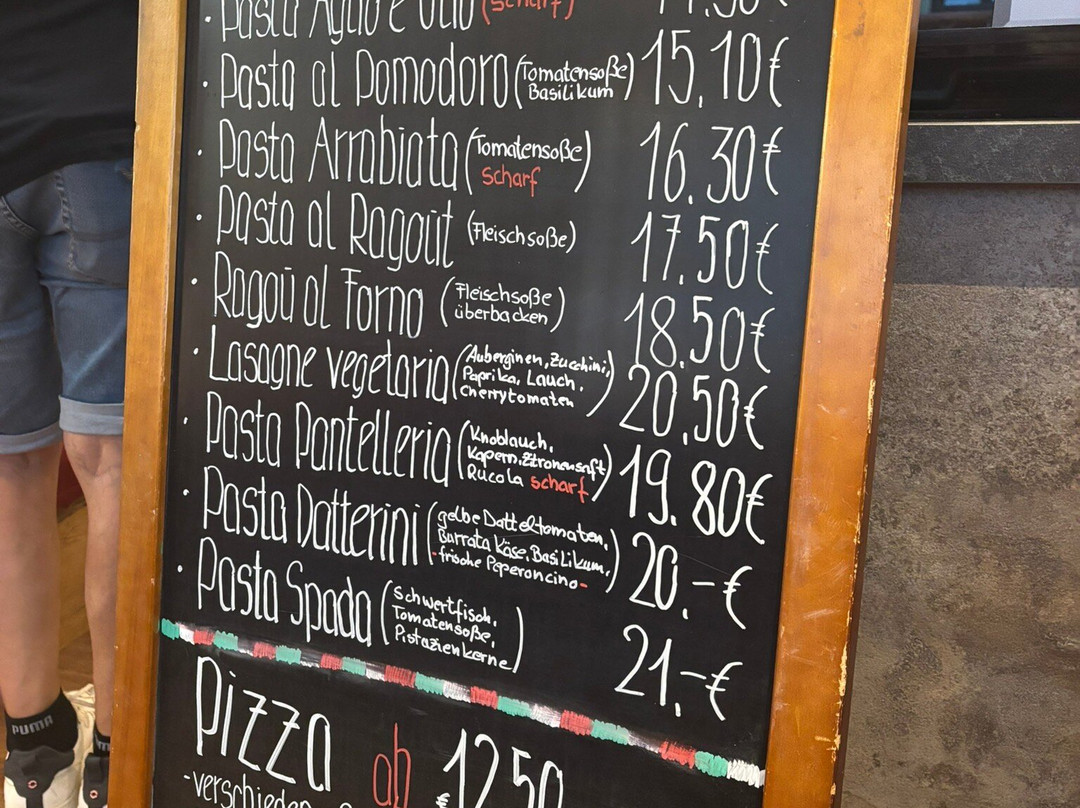 Pasta Aglio e Olio (scharf)
Pasta al Pomodoro (Tomatensoße Basilikum) 15.10€
Pasta Arrabiata (Tomatensoße scharf) 16.30€
Pasta al Ragoût (Fleischsoße) 17.50€
Ragoū al Forno (Fleischsoße überbacken) 18.50€
Lasagne vegetaria (Auberginen, Zucchini, Paprika, Lauch, Cherrytomaten) 20.50€
Pasta Pantelleria (Knoblauch, Kapern, Zitronensaft Rucola scharf) 19.80€
Pasta Datterini (gelbe Datteltomaten, Burrata Käse, Basilikum, -frische Peperoncino-) 20.-€
Pasta Spada (Schwertfisch, Tomatensoße, Pistazienkerne) 21.-€
Pizza ab € 12.50
PUMA